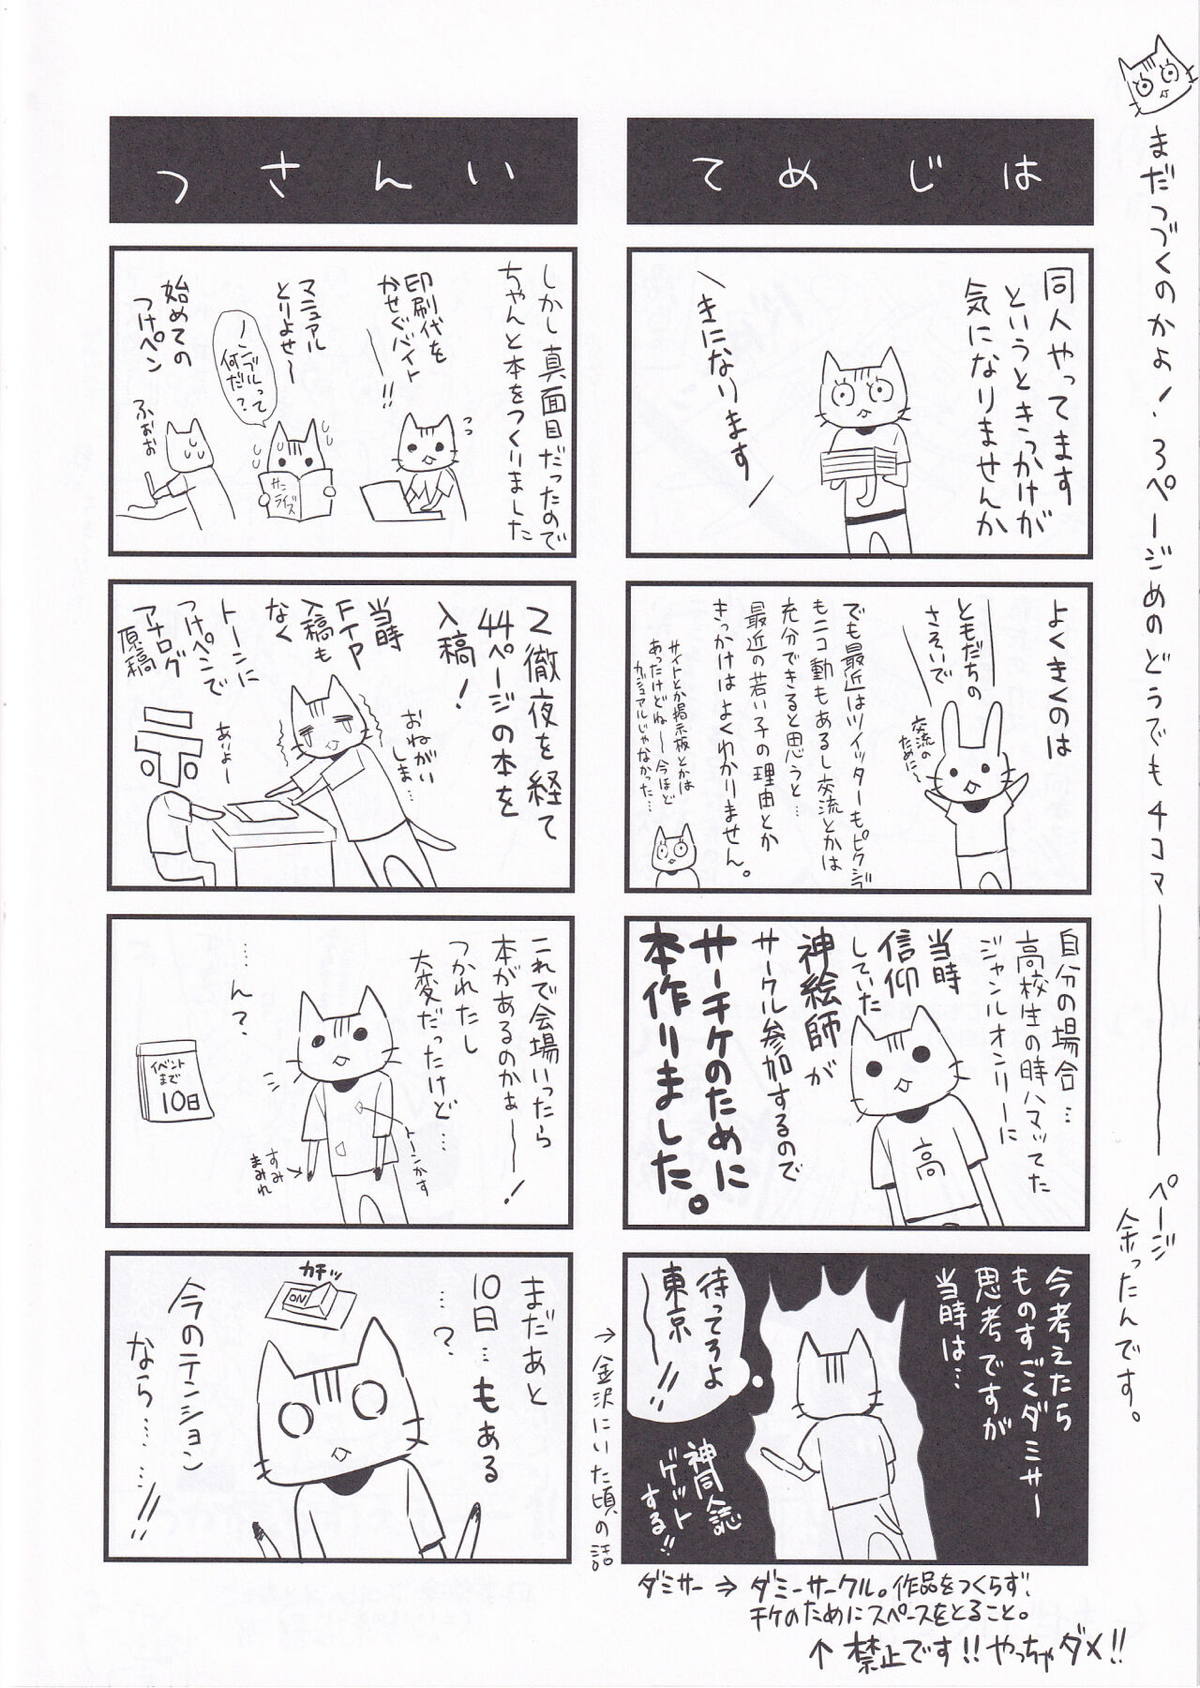 まだつづくのかよ！３ページめのどうでも４コマ――――ページ
余ったんです。
はじめて
同人やってます
というときっかけが
気になりませんか
きになります
よくきくのは
ともだちの
さそいで
交流の
ために〜
でも最近はツイッターもピクシブ
もニコ動もあるし交流とかは
充分できると思うと…
最近の若い子の理由とか
きっかけはよくわかりません。
サイトとか掲示板とかは
あったけどね――今ほど
カジュアルじゃなかった…
自分の場合…
高校生の時ハマッてた
ジャンルオンリーに
当時
信仰
していた
神絵師が
サークル参加するので
サーチケのために
本作りました。
高
今考えたら
ものすごくダミサー
思考ですが
当時は…
待ってろよ
東京――!!
神同人誌
ゲット
する!!
→金沢にいた頃の話
ダミサー⇒ダミーサークル。作品をつくらず、
チケのためにスペースをとること。
↑禁止です!!やっちゃダメ!!
いんさつ
しかし真面目だったので
ちゃんと本をつくりました
印刷代を
かせぐバイト
――!!
マニュアル
とりよせ〜
ノンブルって
何だ？
サン
ライズ
始めての
つけペン
ふぉお
２徹夜を経て
44ページの本を
入稿！
当時
FTP
入稿も
なく
トーンに
つけペンで
アナログ
原稿
おねがい
しま…
あいよー
これで会場いったら
本があるのかぁ――！
つかれたし
大変だったけど…
……ん？
トーンかす
すみ
まみれ
イベント
まで
10日
まだあと
10日…もある
…？
カチッ
ON
今のテンション
なら……!!